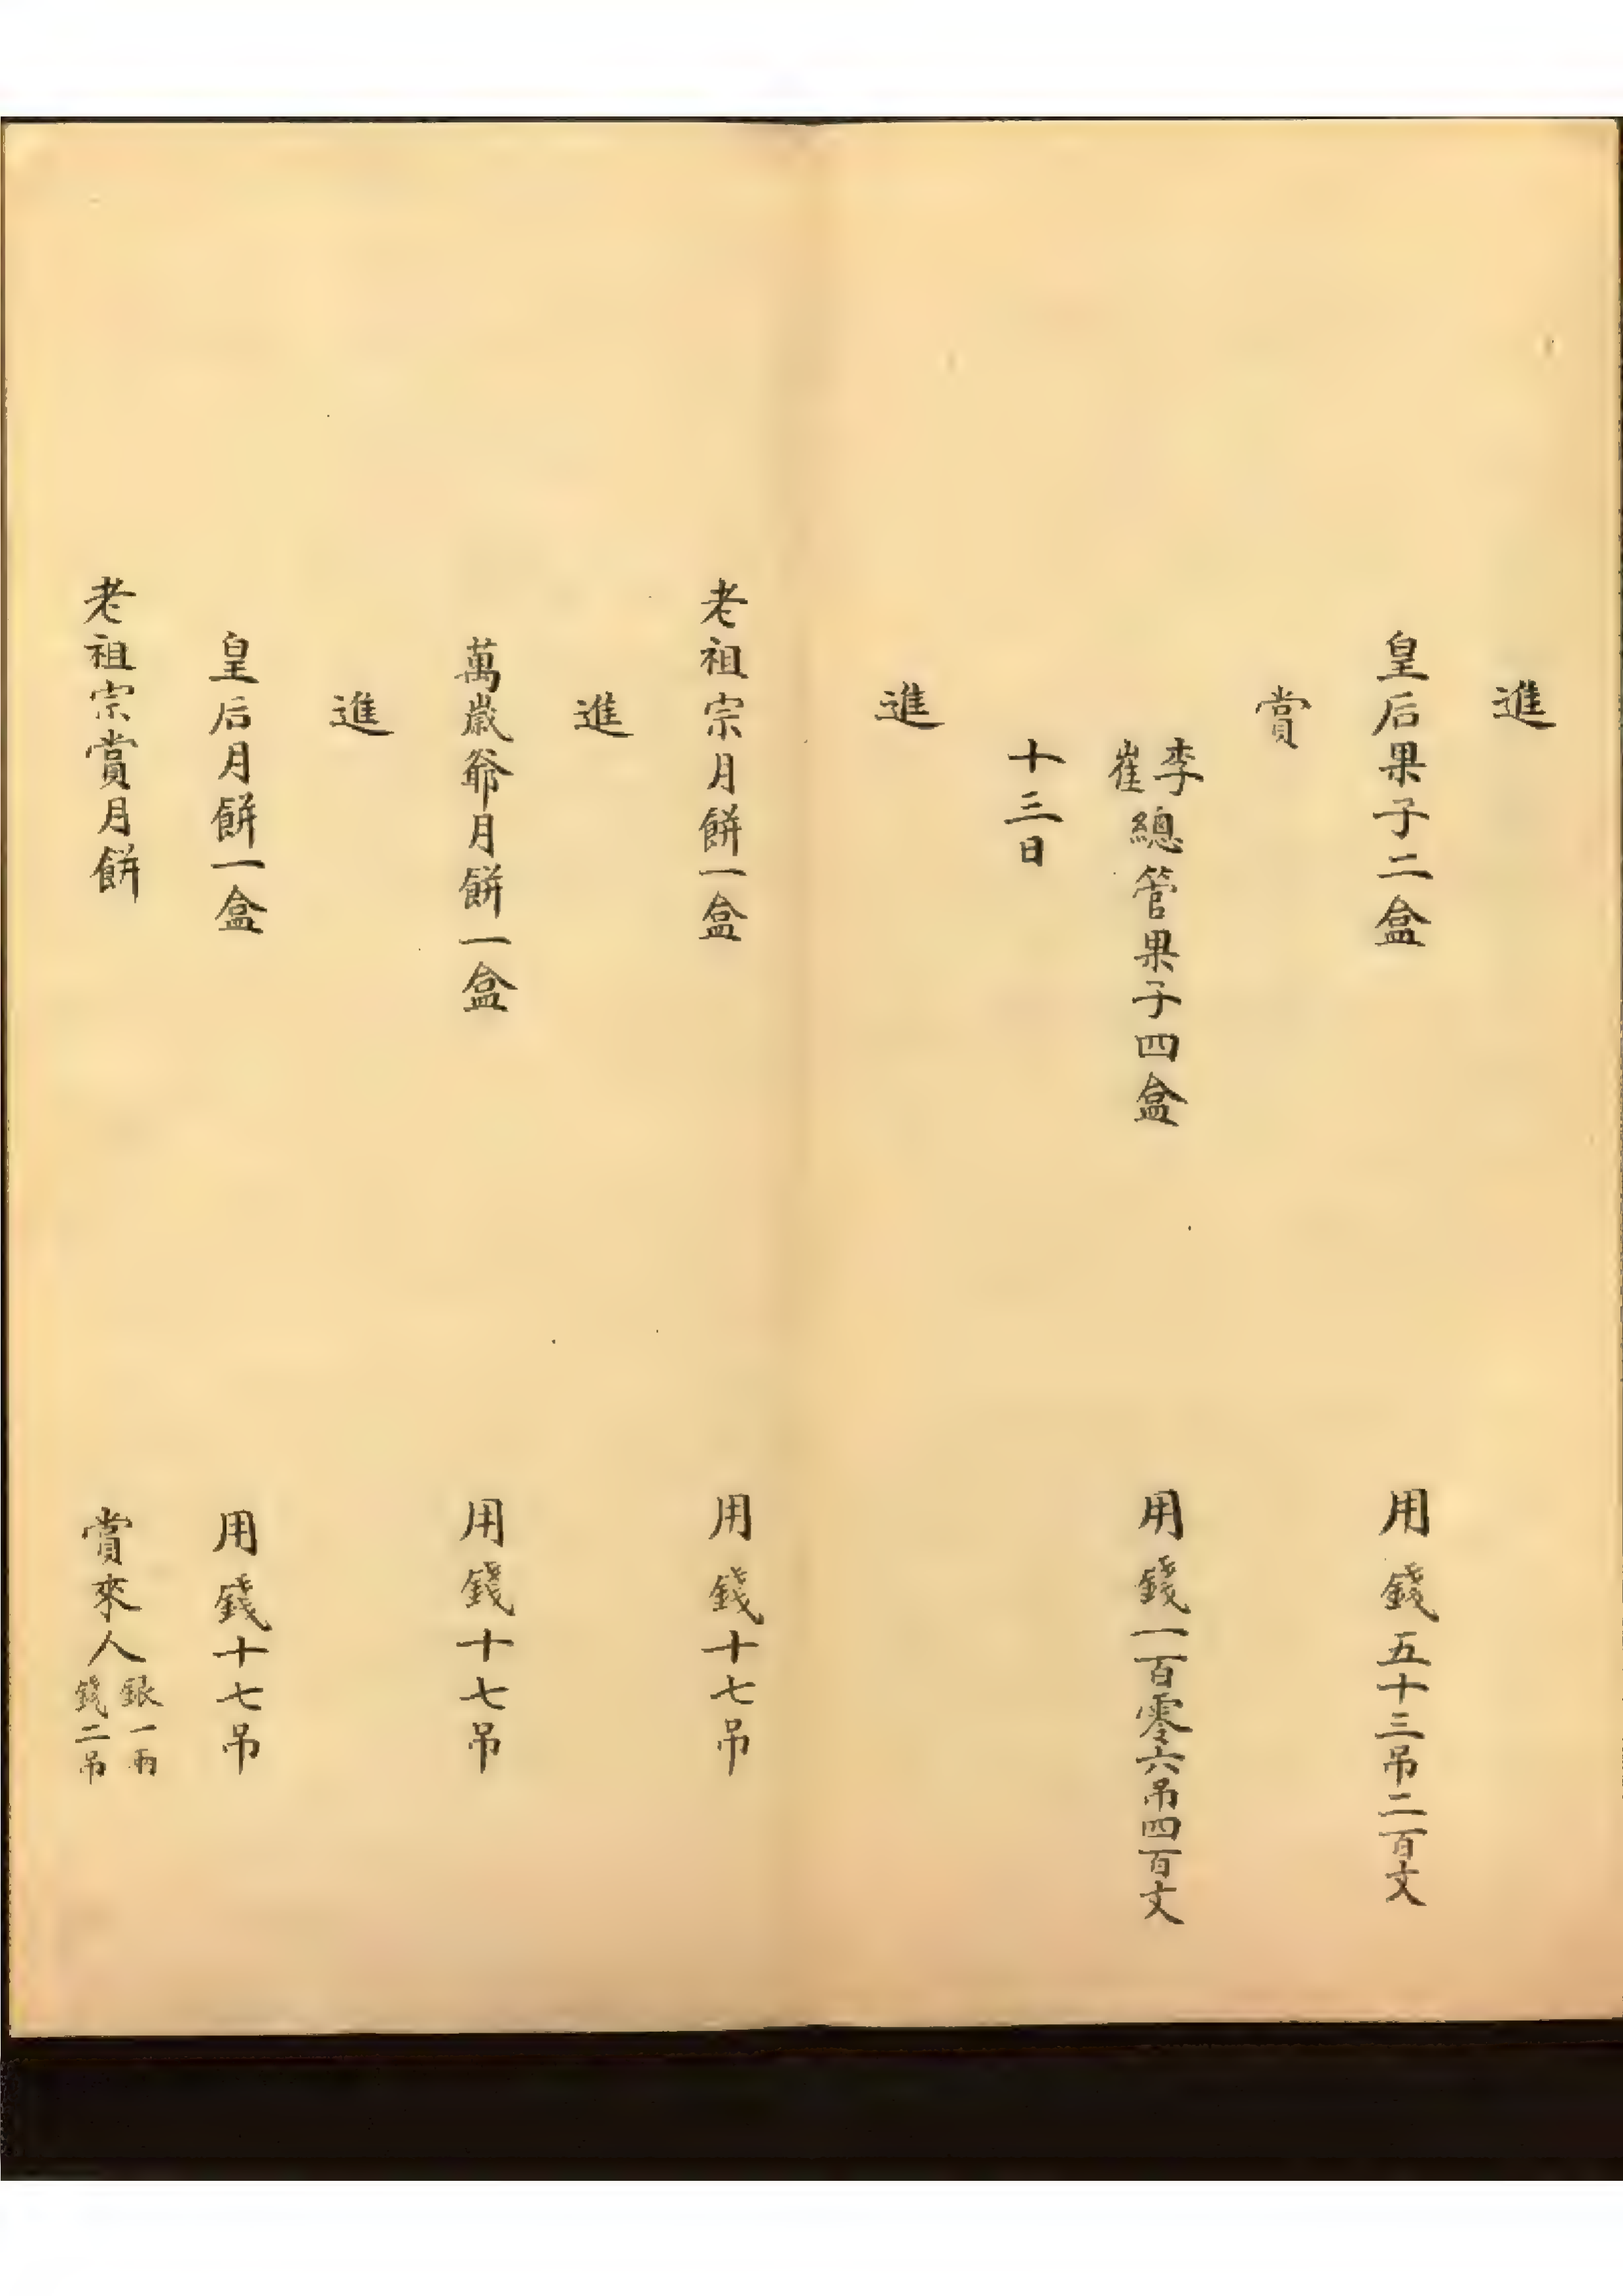 進
皇后果子二盒 用錢五十三吊二百文
賞
李崔總管果子四盒 用錢一百零六吊四百文
十三日
進
老祖宗月餅一盒 用錢十七吊
進
萬歲爺月餅一盒 用錢十七吊
進
皇后月餅一盒 用錢十七吊
老祖宗賞月餅 賞來人銀一兩錢二吊